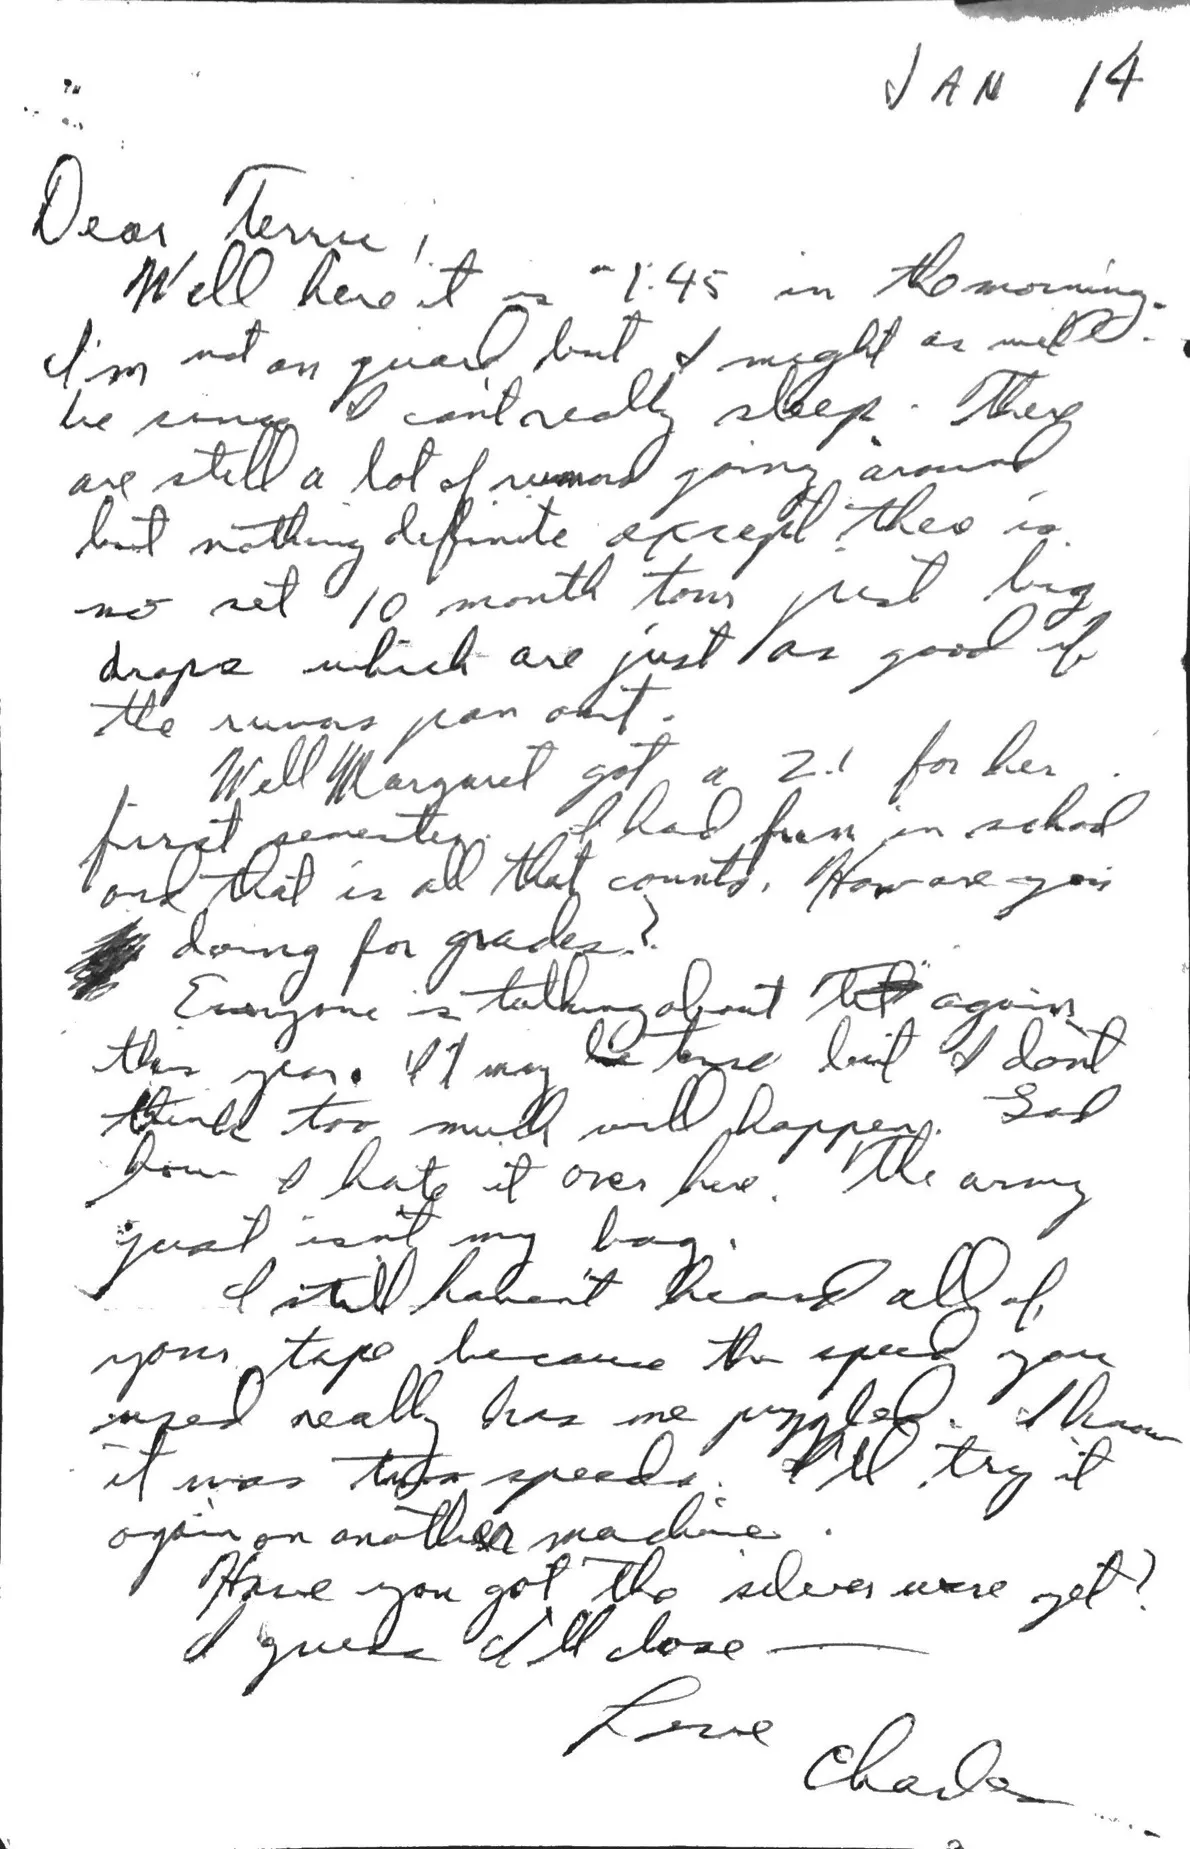 JAN 14
Dear Terrie,
Well here it is 1:45 in the morning.
I'm not on guard but I might as well
be since I can't really sleep. There
are still a lot of rumors going around
but nothing definite except there is
no set 10 month tour just big
drops which are just as good if
the rumors pan out.
Well Margaret got a 2.1 for her
first semester. I had fun in school
and that is all that counts. How are you
doing for grades?
Everyone is talking about Tet again
this year. It may be true but I don't
think too much will happen. God
how I hate it over here. The army
just isn't my bag.
I still haven't heard all of
your tape because the speed you
used really has me puzzled. I know
it was two speeds. I'll try it
again on another machine.
Have you got the silverware yet?
I guess I'll close —
Love
Charles